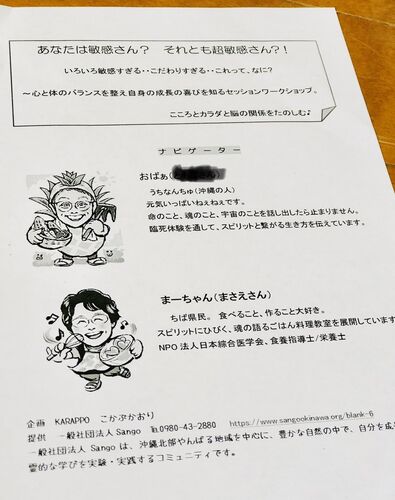 あなたは敏感さん？ それとも超敏感さん？！
いろいろ敏感すぎる・・こだわりすぎる・・これって、なに？
～心と体のバランスを整え自身の成長の喜びを知るセッションワークショップ。
こころとカラダと脳の関係をたのしむ♪
ナビゲーター
おばぁ（
うちなんちゅ（沖縄の人）
元気いっぱいねぇねぇです。
命のこと、魂のこと、宇宙のことを話し出したら止まりません。
臨死体験を通して、スピリットと繋がる生き方を伝えています。
まーちゃん（まさえさん）
ちば県民。 食べること、作ること大好き。
スピリットにひびく、魂の語るごはん料理教室を展開しています
NPO法人日本綜合医学会、食養指導士/栄養士
企画 KARAPPO こかぶかおり
提供 一般社団法人Sango ℡0980-43-2880 https://www.sangookinawa.org/blank-6
一般社団法人Sangoは、沖縄北部やんばる地域を中心に、豊かな自然の中で、自分を成
霊的な学びを実験・実践するコミュニティです。